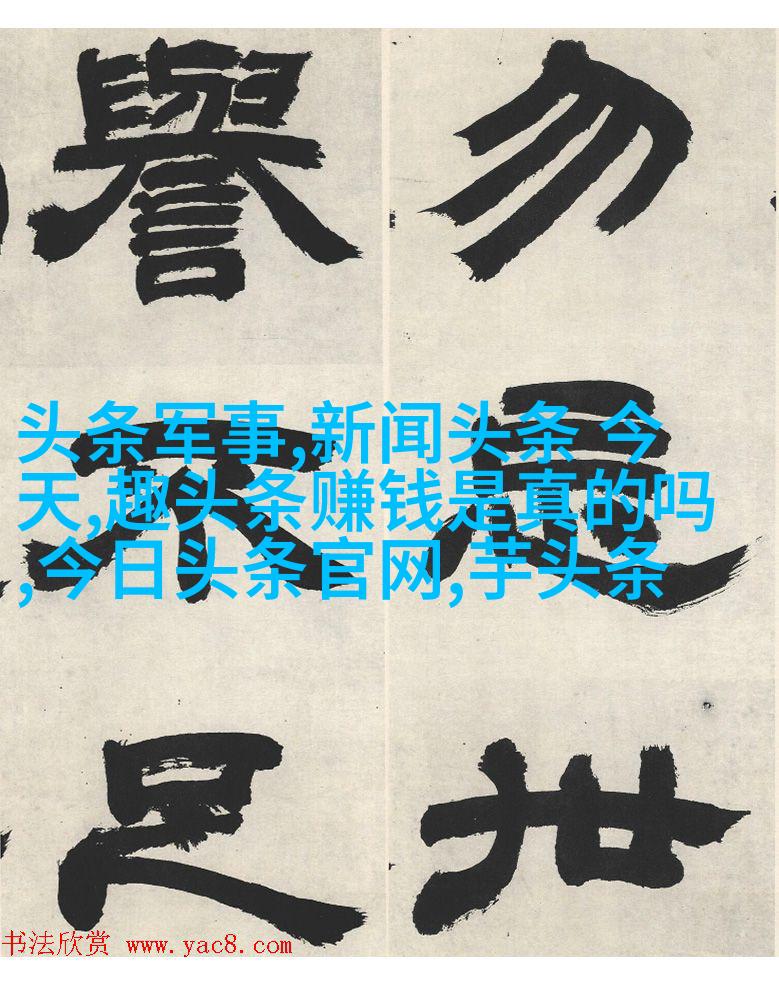 勿忘世
譽不足
头条军事,新闻头条 今
天,趣头条赚钱是真的吗
,今日头条官网,芋头条
书法欣赏 www.yac8.com